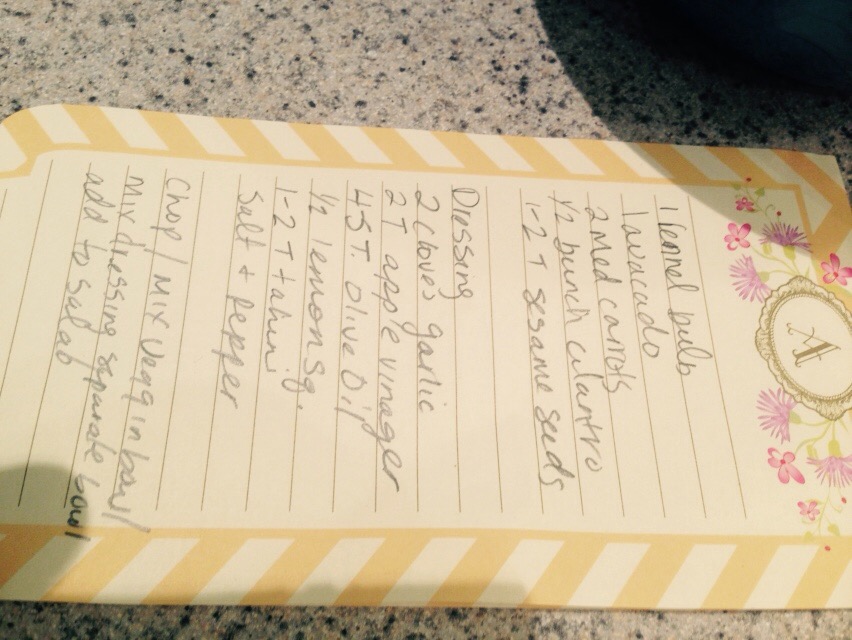 A
1 fennel bulb
1 avacado
2 Med carrots
1/2 bunch cilantro
1-2 T sesame seeds
Dressing
2 cloves garlic
2 T apple vinager
4 ST. Olive Oil
1/2 lemon sq.
1-2 T tahini
Salt + pepper
Chop / Mix Vegg in bowl
Mix dressing separate bowl
add to salad